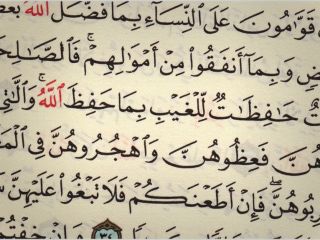 قَوَّٰمُونَ عَلَى ٱلنِّسَآءِ بِمَا فَضَّلَ ٱللَّهُ بَعْضَ
وَبِمَآ أَنفَقُوا۟ مِنْ أَمْوَٰلِهِمْ ۚ فَٱلصَّٰلِحَ
حَٰفِظَٰتٌ لِّلْغَيْبِ بِمَا حَفِظَ ٱللَّهُ ۚ وَٱلَّٰتِى
فَعِظُوهُنَّ وَٱهْجُرُوهُنَّ فِى ٱلْمَ
رِبُوهُنَّ ۖ فَإِنْ أَطَعْنَكُمْ فَلَا تَبْغُوا۟ عَلَيْهِنَّ
٣٤ وَإِنْ خِفْتُمْ